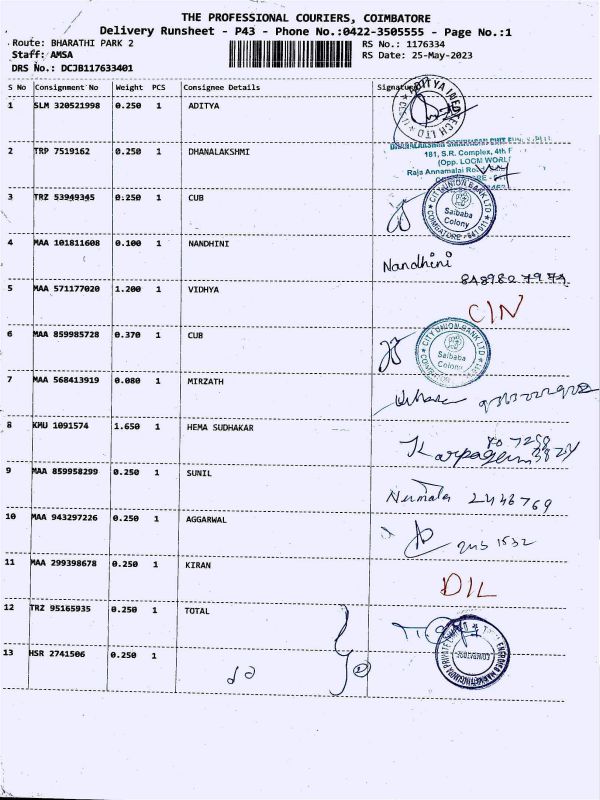 THE PROFESSIONAL COURIERS, COIMBATORE
Delivery Runsheet - P43 - Phone No.:0422-3505555 - Page No.:1
Route: BHARATHI PARK 2 RS No.: 1176334
Staff: AMSA RS Date: 25-May-2023
DRS No.: DCJB117633401
S No Consignment No Weight PCS Consignee Details Signature
1 SLM 320521998 0.250 1 ADITYA
ADITYA INFOTECH LTD
2 TRP 7519162 0.250 1 DHANALAKSHMI
181, S.R. Complex, 4th F
(Opp. LOOM WORL
Raja Annamalai
3 TRZ 53949345 0.250 1 CUB
CITY UNION BANK LTD
Saibaba
Colony
COIMBATORE - 641 011
4 MAA 101811608 0.100 1 NANDHINI
Nandhini
5 MAA 571177020 1.200 1 VIDHYA
CIN
6 MAA 859985728 0.370 1 CUB
CITY UNION BANK LTD
Saibaba
Colony
7 MAA 568413919 0.080 1 MIRZATH
8 KMU 1091574 1.650 1 HEMA SUDHAKAR
Karpagam
9 MAA 859958299 0.250 1 SUNIL
Nirmala 2446769
10 MAA 943297226 0.250 1 AGGARWAL
11 MAA 299398678 0.250 1 KIRAN
DIL
12 TRZ 95165935 0.250 1 TOTAL
13 HSR 2741506 0.250 1
do
2